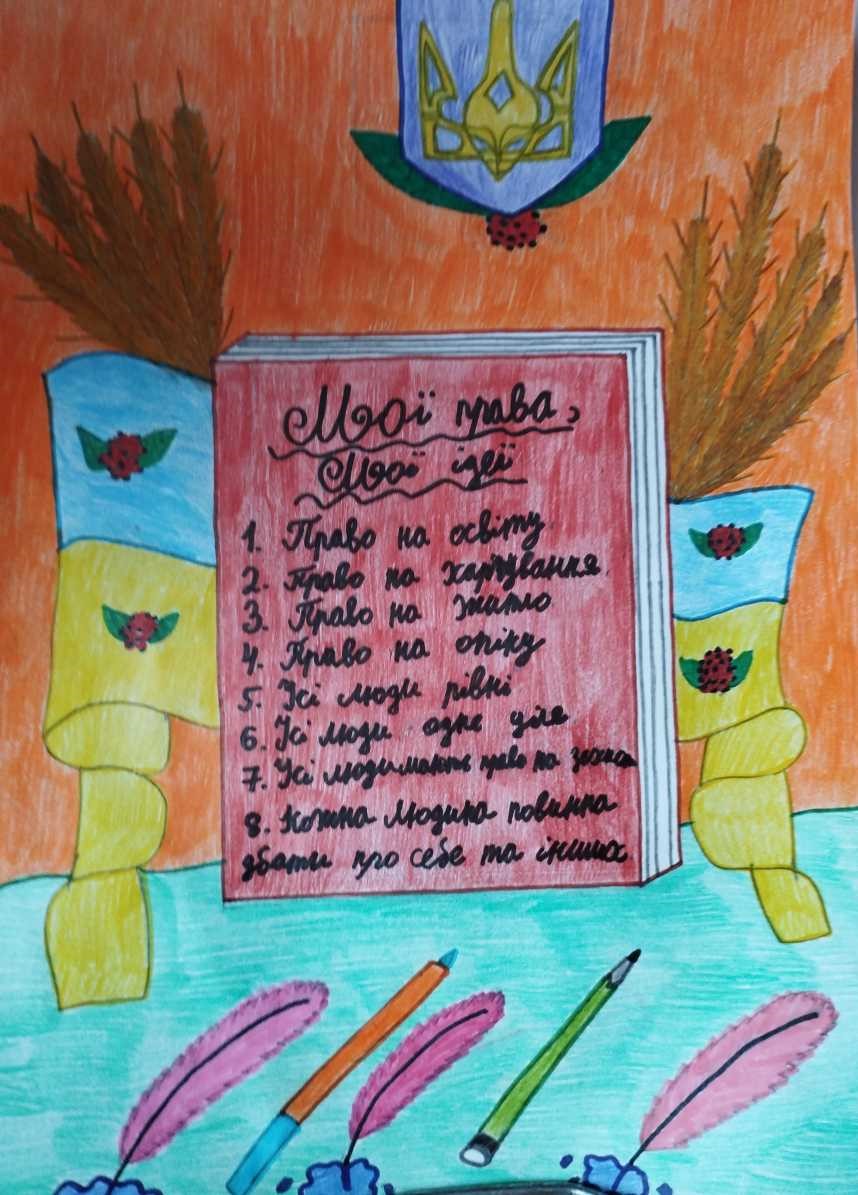 Мої права,
Мої ідеї
1. Право на освіту
2. Право на харчування
3. Право на житло
4. Право на опіку
5. Усі люди рівні
6. Усі люди одне ціле
7. Усі люди мають право на захист
8. Кожна людина повинна
дбати про себе та інших